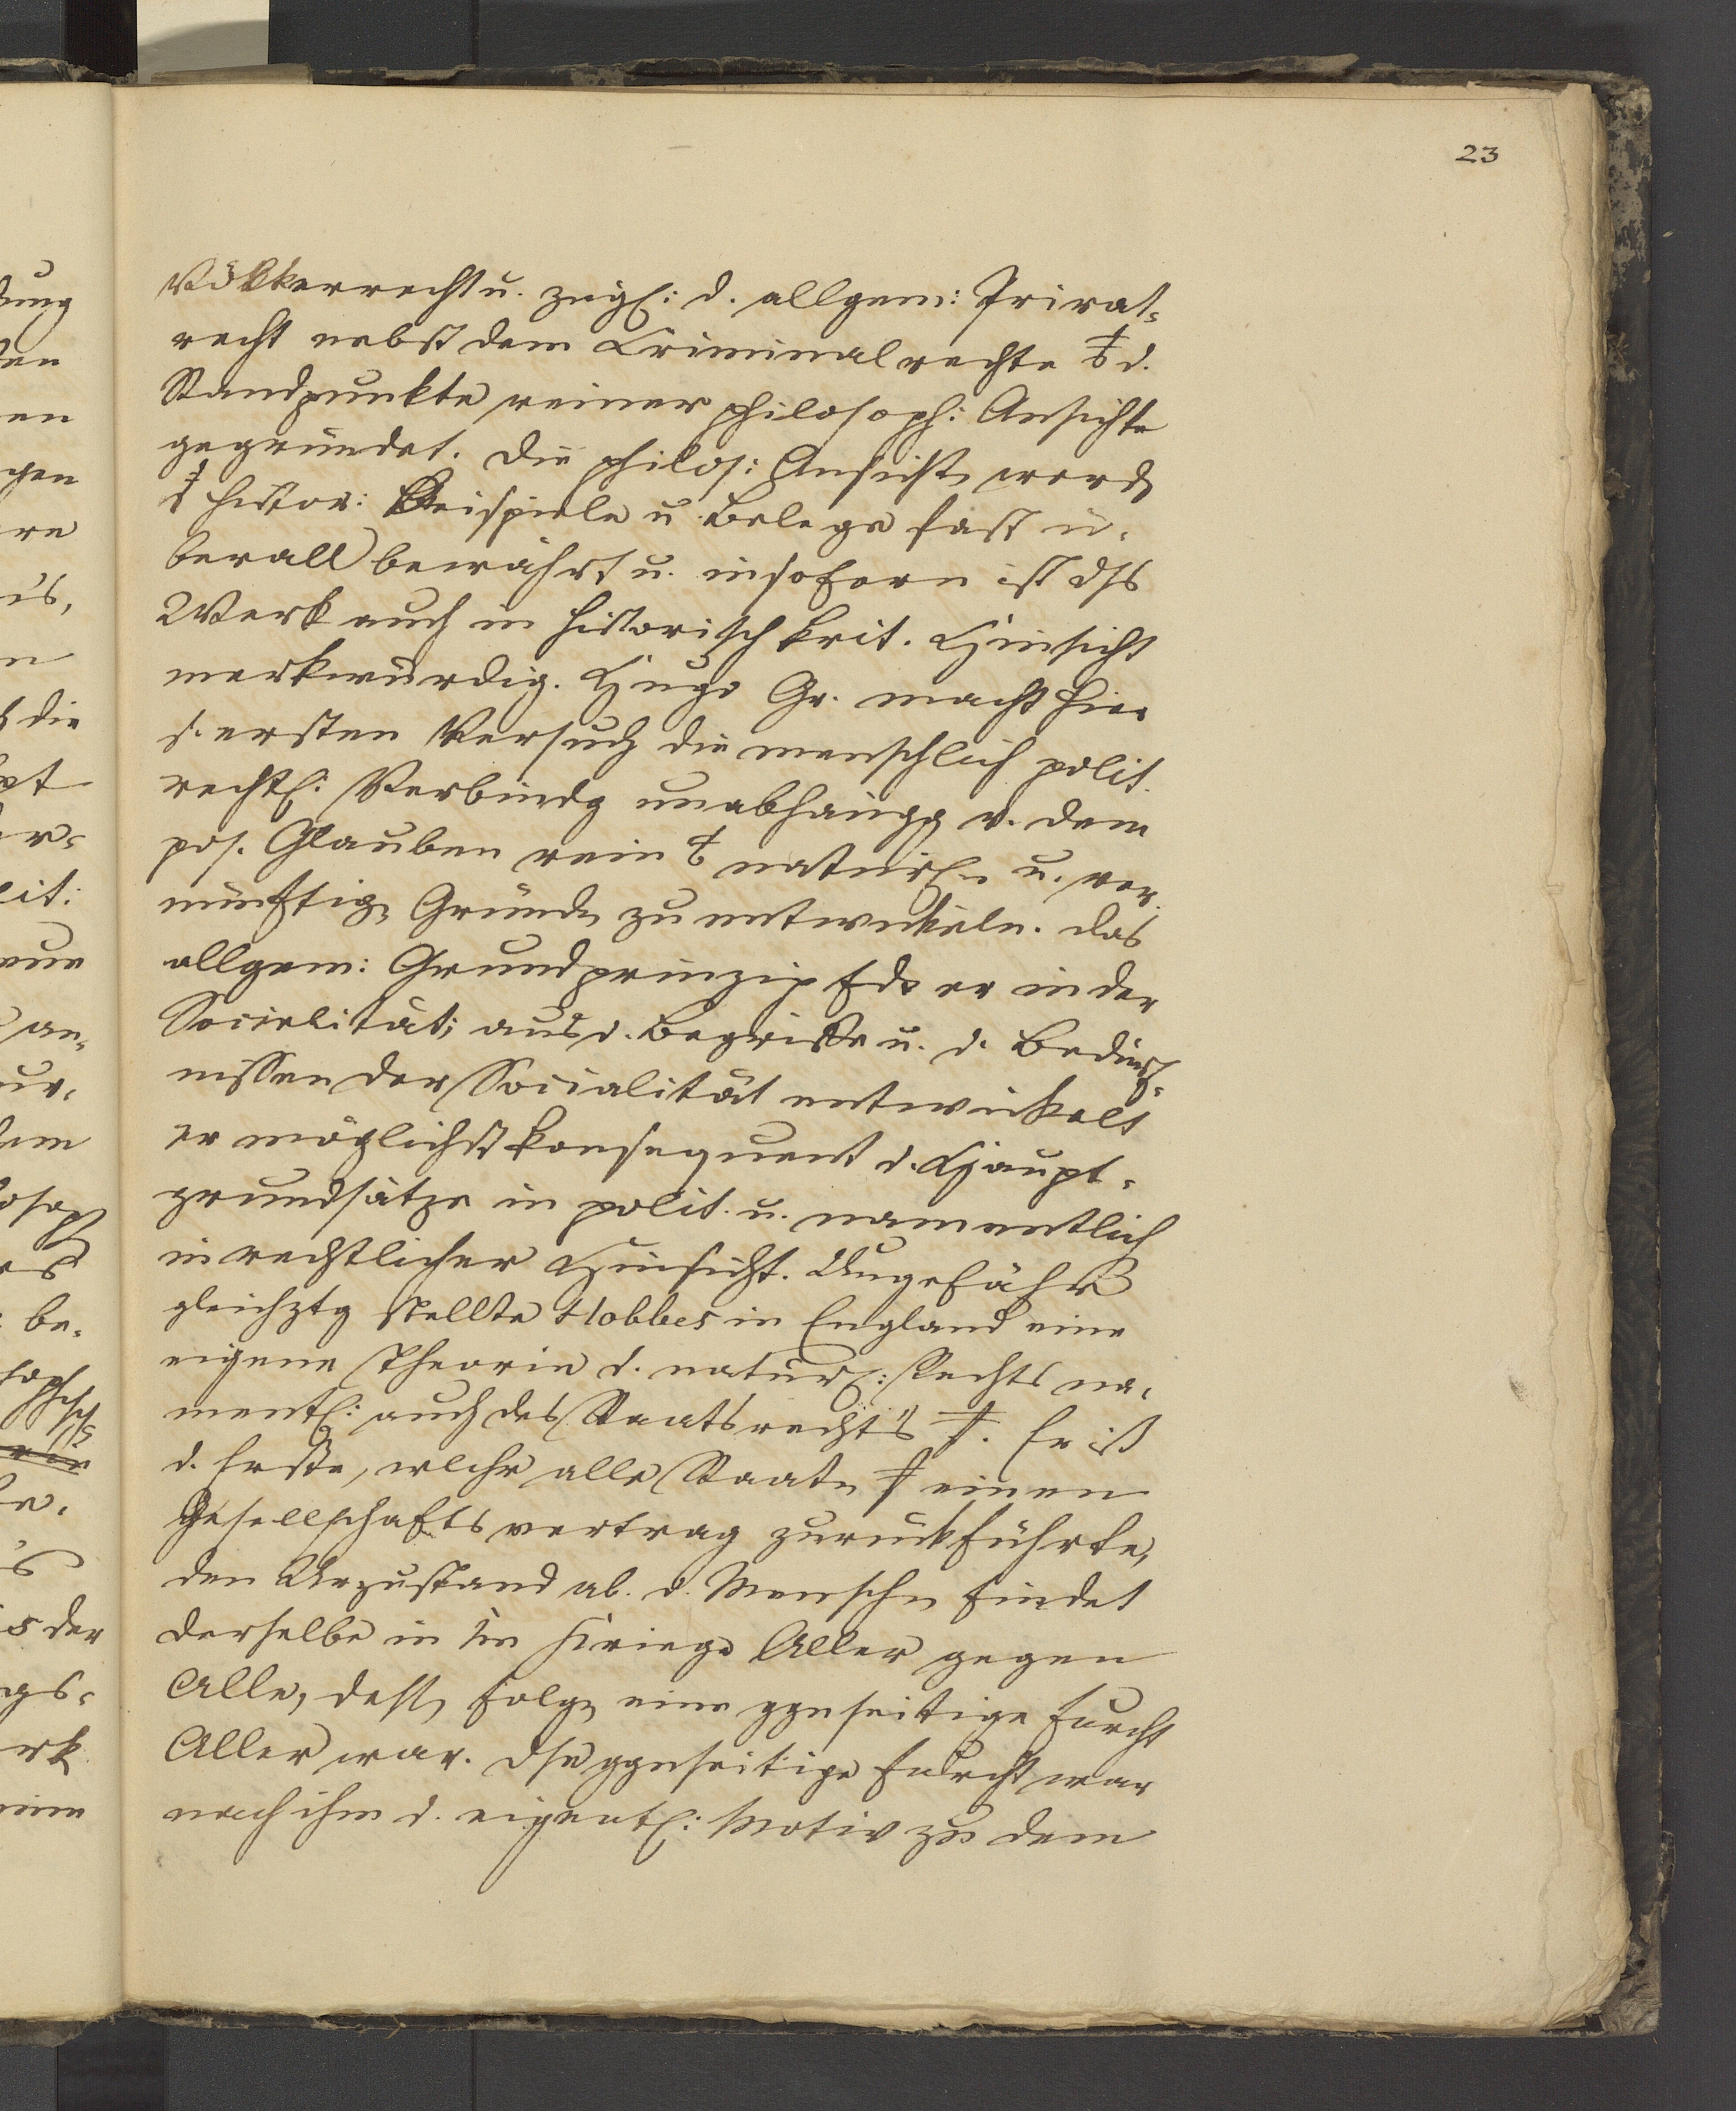 23
Völkerrecht u. zugl: d. allgem: Privat-
recht nebst dem Kriminalrechte d.
Standpunkte reiner philosoph: Ansichte
gegründet. Die philos: Ansichtn werdn
histor: Beispiele u Belege fast ü-
berall bewährt u. insofern ist dss
Werk auch in historisch krit. Hinsicht
merkwürdig. Hugo Gr. macht hier
d. ersten Versuch die menschlich polit.
rechtl: Verbindg unabhängg v. dem
pos. Glauben rein natürln u. ver-
nünftign Gründn zu entwickeln. Das
allgem: Grundprinzip fdt er in der
Socialität; aus d. Begriffe u. d. Bedürf-
nissen der Socialität entwickelt
er möglichst konsequent d. Haupt-
grundsätze in polit. u. namentlich
in rechtlicher Hinsicht. Ungefähr
gleichztg stellte Hobbes in England eine
eigene Theorie d. natürl: Rechts na-
mentl: auch des Staatsrechts. Er ist
d. Erste, wlchr alle Staatn einen
Gesellschaftsvertrag zurückführte,
den Urzustand ab. d. Menschn findet
derselbe in Kriege Aller gegen
Alle, dessn Folgn eine ggnseitige Furcht
Aller war. Dse ggnseitige Furcht war
nach ihm d. eigentl: Motiv zu dem